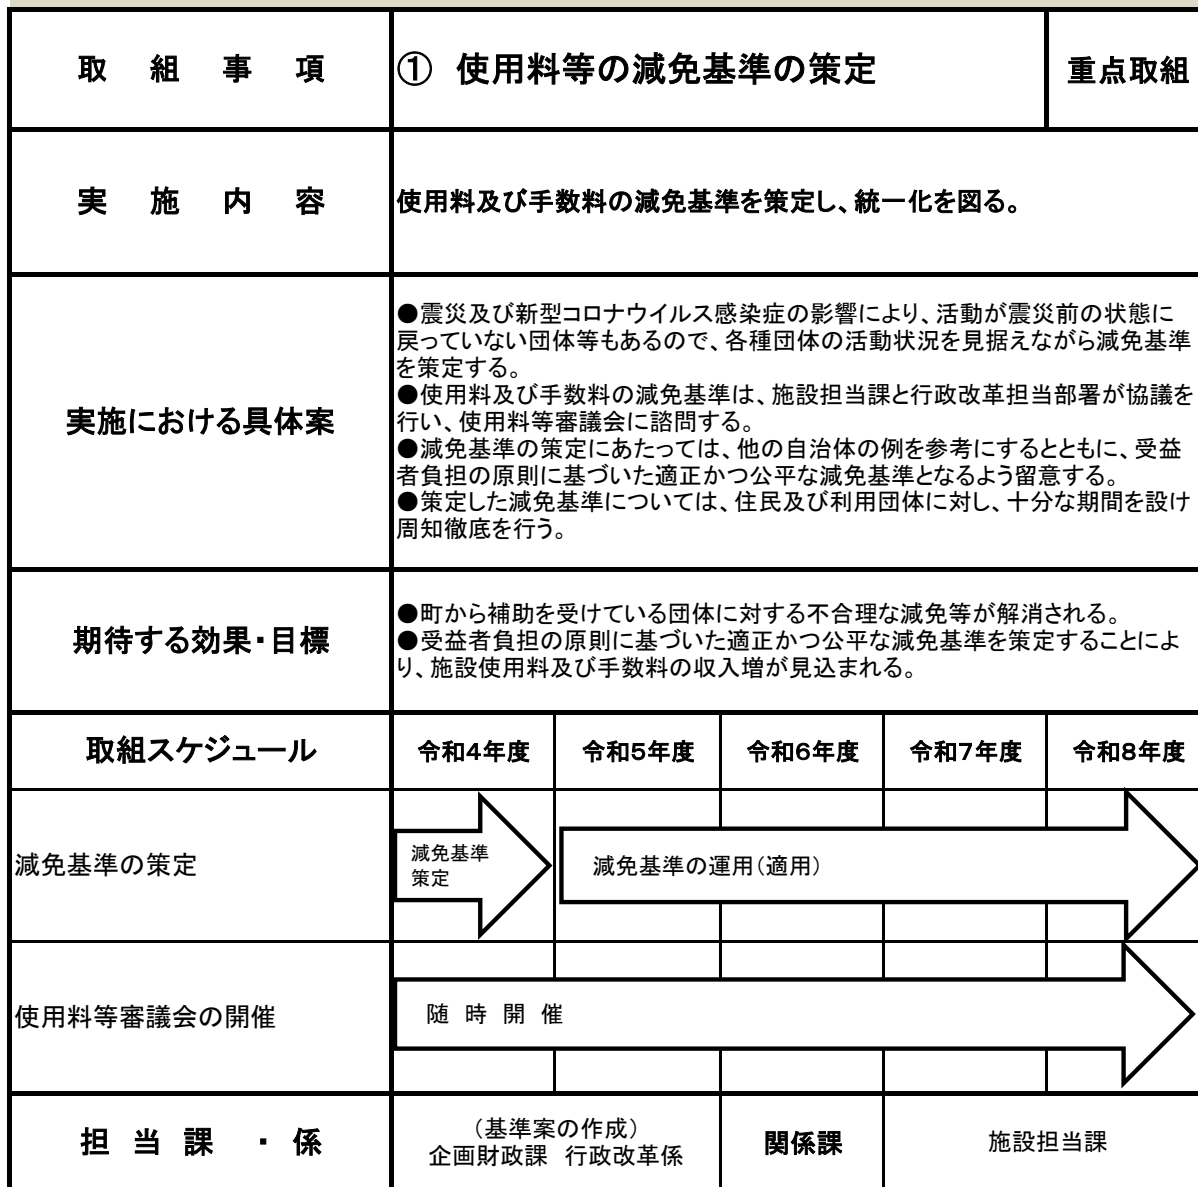 取 組 事 項
① 使用料等の減免基準の策定
重点取組
実 施 内 容
使用料及び手数料の減免基準を策定し、統一化を図る。
実施における具体案
●震災及び新型コロナウイルス感染症の影響により、活動が震災前の状態に
戻っていない団体等もあるので、各種団体の活動状況を見据えながら減免基準
を策定する。
●使用料及び手数料の減免基準は、施設担当課と行政改革担当部署が協議を
行い、使用料等審議会に諮問する。
●減免基準の策定にあたっては、他の自治体の例を参考にするとともに、受益
者負担の原則に基づいた適正かつ公平な減免基準となるよう留意する。
●策定した減免基準については、住民及び利用団体に対し、十分な期間を設け
周知徹底を行う。
期待する効果・目標
●町から補助を受けている団体に対する不合理な減免等が解消される。
●受益者負担の原則に基づいた適正かつ公平な減免基準を策定することによ
り、施設使用料及び手数料の収入増が見込まれる。
取組スケジュール
令和4年度
令和5年度
令和6年度
令和7年度
令和8年度
減免基準の策定
減免基準
策定
減免基準の運用(適用)
使用料等審議会の開催
随 時 開 催
担 当 課 ・ 係
(基準案の作成)
企画財政課 行政改革係
関係課
施設担当課